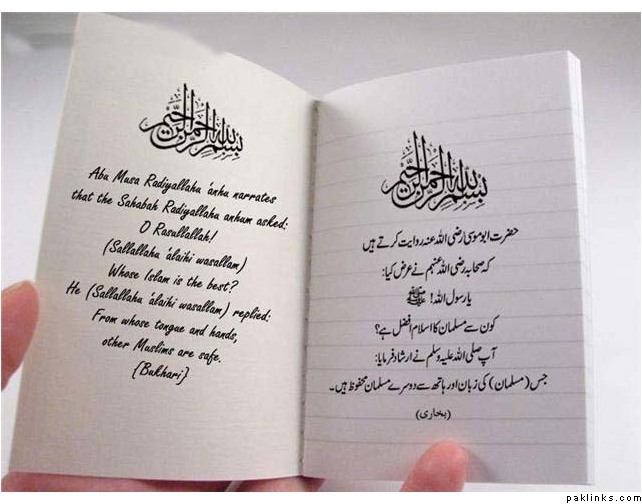 بسم الله الرحمن الرحيم
Abu Musa Radiyallahu 'anhu narrates
that the Sahabah Radiyallahu anhum asked:
O Rasullallah!
(Sallallahu 'alaihi wasallam)
Whose Islam is the best?
He (Sallallahu 'alaihi wasallam) replied:
From whose tongue and hands,
other Muslims are safe.
{Bukhari}
بسم الله الرحمن الرحيم
حضرت ابو موسیٰ رضی اللہ عنہ روایت کرتے ہیں
کہ صحابہ رضی اللہ عنہم نے عرض کیا:
یا رسول اللہ! ﷺ
کون سے مسلمان کا اسلام افضل ہے؟
آپ صلی اللہ علیہ وسلم نے ارشاد فرمایا:
جس (مسلمان) کی زبان اور ہاتھ سے دوسرے مسلمان محفوظ ہیں۔
(بخاری)
paklinks.com